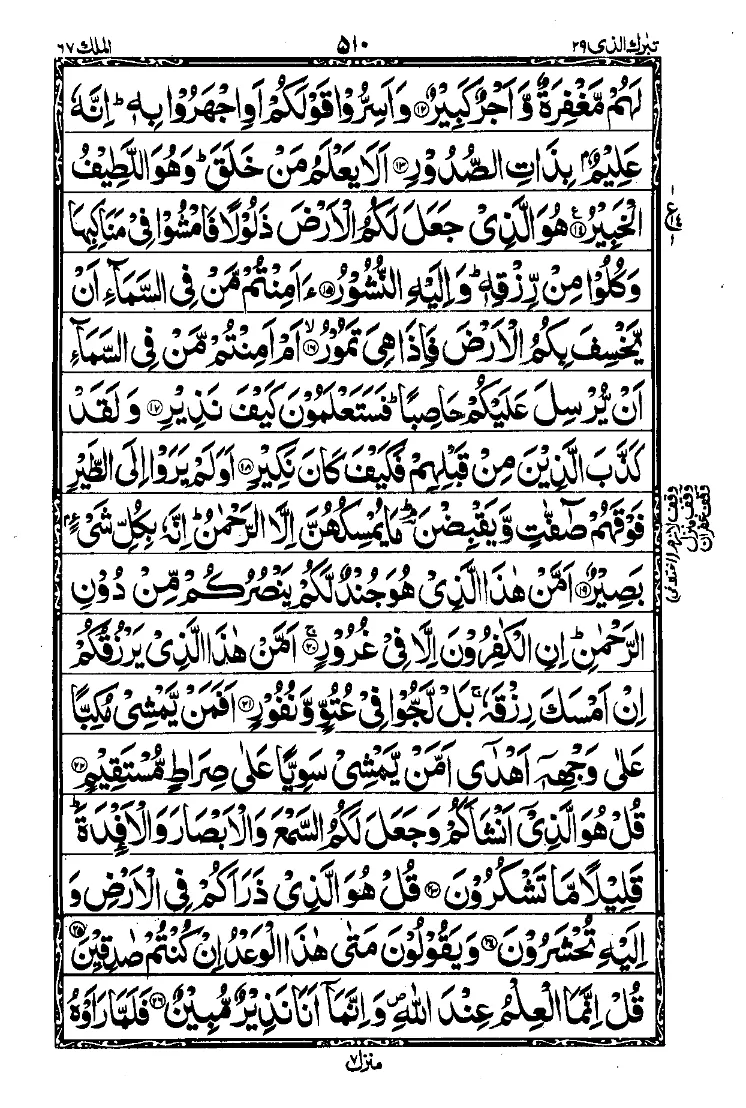 تبٰرك الذی ۲۹ ۵۱۰ الملك ۶۷
لَهُمْ مَّغْفِرَةٌ وَّاَجْرٌ كَبِيْرٌ ۝۱۲ وَاَسِرُّوْا قَوْلَكُمْ اَوِ اجْهَرُوْا بِهٖ ؕ اِنَّهٗ
عَلِيْمٌۢ بِذَاتِ الصُّدُوْرِ ۝۱۳ اَلَا يَعْلَمُ مَنْ خَلَقَ ؕ وَهُوَ اللَّطِيْفُ
الْخَبِيْرُ ۝۱۴ هُوَ الَّذِيْ جَعَلَ لَكُمُ الْاَرْضَ ذَلُوْلًا فَامْشُوْا فِيْ مَنَاكِبِهَا
ع
وَكُلُوْا مِنْ رِّزْقِهٖ ؕ وَاِلَيْهِ النُّشُوْرُ ۝۱۵ ءَاَمِنْتُمْ مَّنْ فِي السَّمَآءِ اَنْ
يَّخْسِفَ بِكُمُ الْاَرْضَ فَاِذَا هِيَ تَمُوْرُ ۙ۝۱۶ اَمْ اَمِنْتُمْ مَّنْ فِي السَّمَآءِ
اَنْ يُّرْسِلَ عَلَيْكُمْ حَاصِبًا ؕ فَسَتَعْلَمُوْنَ كَيْفَ نَذِيْرِ ۝۱۷ وَلَقَدْ
كَذَّبَ الَّذِيْنَ مِنْ قَبْلِهِمْ فَكَيْفَ كَانَ نَكِيْرِ ۝۱۸ اَوَلَمْ يَرَوْا اِلَى الطَّيْرِ
فَوْقَهُمْ صٰٓفّٰتٍ وَّيَقْبِضْنَ ؔۘ مَا يُمْسِكُهُنَّ اِلَّا الرَّحْمٰنُ ؕ اِنَّهٗ بِكُلِّ شَيْءٍۢ
بَصِيْرٌ ۝۱۹ اَمَّنْ هٰذَا الَّذِيْ هُوَ جُنْدٌ لَّكُمْ يَنْصُرُكُمْ مِّنْ دُوْنِ
الرَّحْمٰنِ ؕ اِنِ الْكٰفِرُوْنَ اِلَّا فِيْ غُرُوْرٍ ۚ۝۲۰ اَمَّنْ هٰذَا الَّذِيْ يَرْزُقُكُمْ
اِنْ اَمْسَكَ رِزْقَهٗ ۚ بَلْ لَّجُّوْا فِيْ عُتُوٍّ وَّنُفُوْرٍ ۝۲۱ اَفَمَنْ يَّمْشِيْ مُكِبًّا
عَلٰى وَجْهِهٖٓ اَهْدٰٓى اَمَّنْ يَّمْشِيْ سَوِيًّا عَلٰى صِرَاطٍ مُّسْتَقِيْمٍ ۝۲۲
قُلْ هُوَ الَّذِيْٓ اَنْشَاَكُمْ وَجَعَلَ لَكُمُ السَّمْعَ وَالْاَبْصَارَ وَالْاَفْـِٕدَةَ ؕ
قَلِيْلًا مَّا تَشْكُرُوْنَ ۝۲۳ قُلْ هُوَ الَّذِيْ ذَرَاَكُمْ فِي الْاَرْضِ وَ
اِلَيْهِ تُحْشَرُوْنَ ۝۲۴ وَيَقُوْلُوْنَ مَتٰى هٰذَا الْوَعْدُ اِنْ كُنْتُمْ صٰدِقِيْنَ ۝۲۵
قُلْ اِنَّمَا الْعِلْمُ عِنْدَ اللّٰهِ ۪ وَاِنَّمَآ اَنَا نَذِيْرٌ مُّبِيْنٌ ۝۲۶ فَلَمَّا رَاَوْهُ
منزل ۷